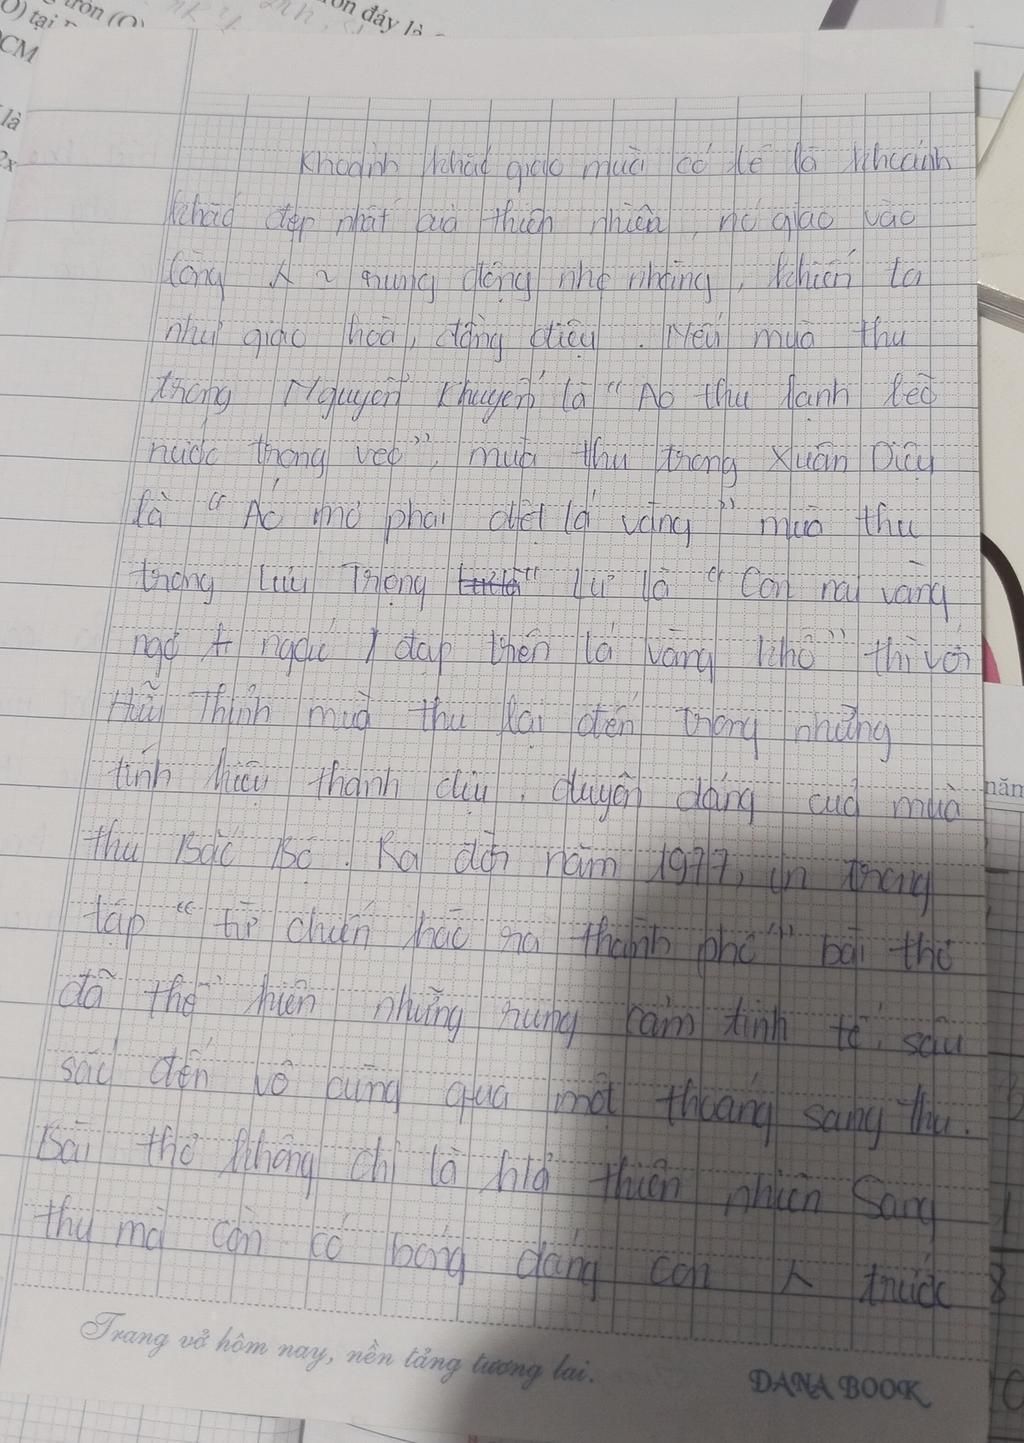 O) tại
tròn (O)
ồn đáy là
CM
là
2x
Khoảnh khắc giao mùa có lẽ là khoảnh
khắc đẹp nhất của thiên nhiên, nó giao vào
lòng λ ~ rung động nhẹ nhàng, khiến ta
như giao hoà, đồng điệu. Nếu mùa thu
trong Nguyễn Khuyến là " Ao thu lạnh lẽo
nước trong veo", mùa thu trong Xuân Diệu
là " Áo mơ phai dệt lá vàng" mùa thu
trong Lưu Trọng Lư là " Con nai vàng
ngơ + ngác / đạp trên lá vàng khô" thì với
Hữu Thỉnh mùa thu lại đến trong những
tính hiệu thanh dịu, duyên dáng của mùa
thu Bắc Bộ. Ra đời năm 1977, in trong
tập " từ chiến hào ra thành phố" bài thơ
đã thể hiện những rung cảm tinh tế, sâu
sắc đến vô cùng qua một thoáng sang thu.
Bài thơ không chỉ là h/ả thiên nhiên Sang
thu mà còn có bóng dáng con λ trước
Trang vở hôm nay, nền tảng tương lai.
DANA BOOK
năm
8